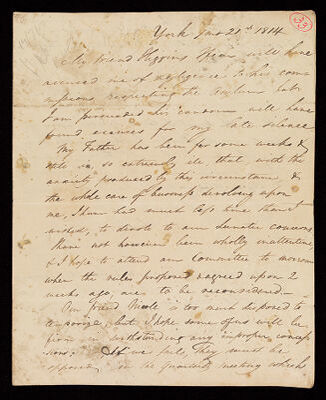 33
York 21st 1814
My friend Higgins I fear will have
accused me of negligence to his com
missions respecting the Asylum but
I am persuaded his candour will have
found excuses for my late silence
My Father has been for some weeks &
still is, so extremely ill, that with the
anxiety produced by this circumstance &
the whole care of business devolving upon
me, I have had much less time than I
wished, to devote to concerns.
I have not however been wholly inattentive,
& I hope to attend our Committee to morrow
when the rules proposed & agreed upon 2
weeks ago, are to be reconsidered —
Our friend is too much disposed to
temporize, but I hope some of us will be
firm in withstanding any improper conces
sions. If we fail, they must be
opposed in the Quarterly meeting which